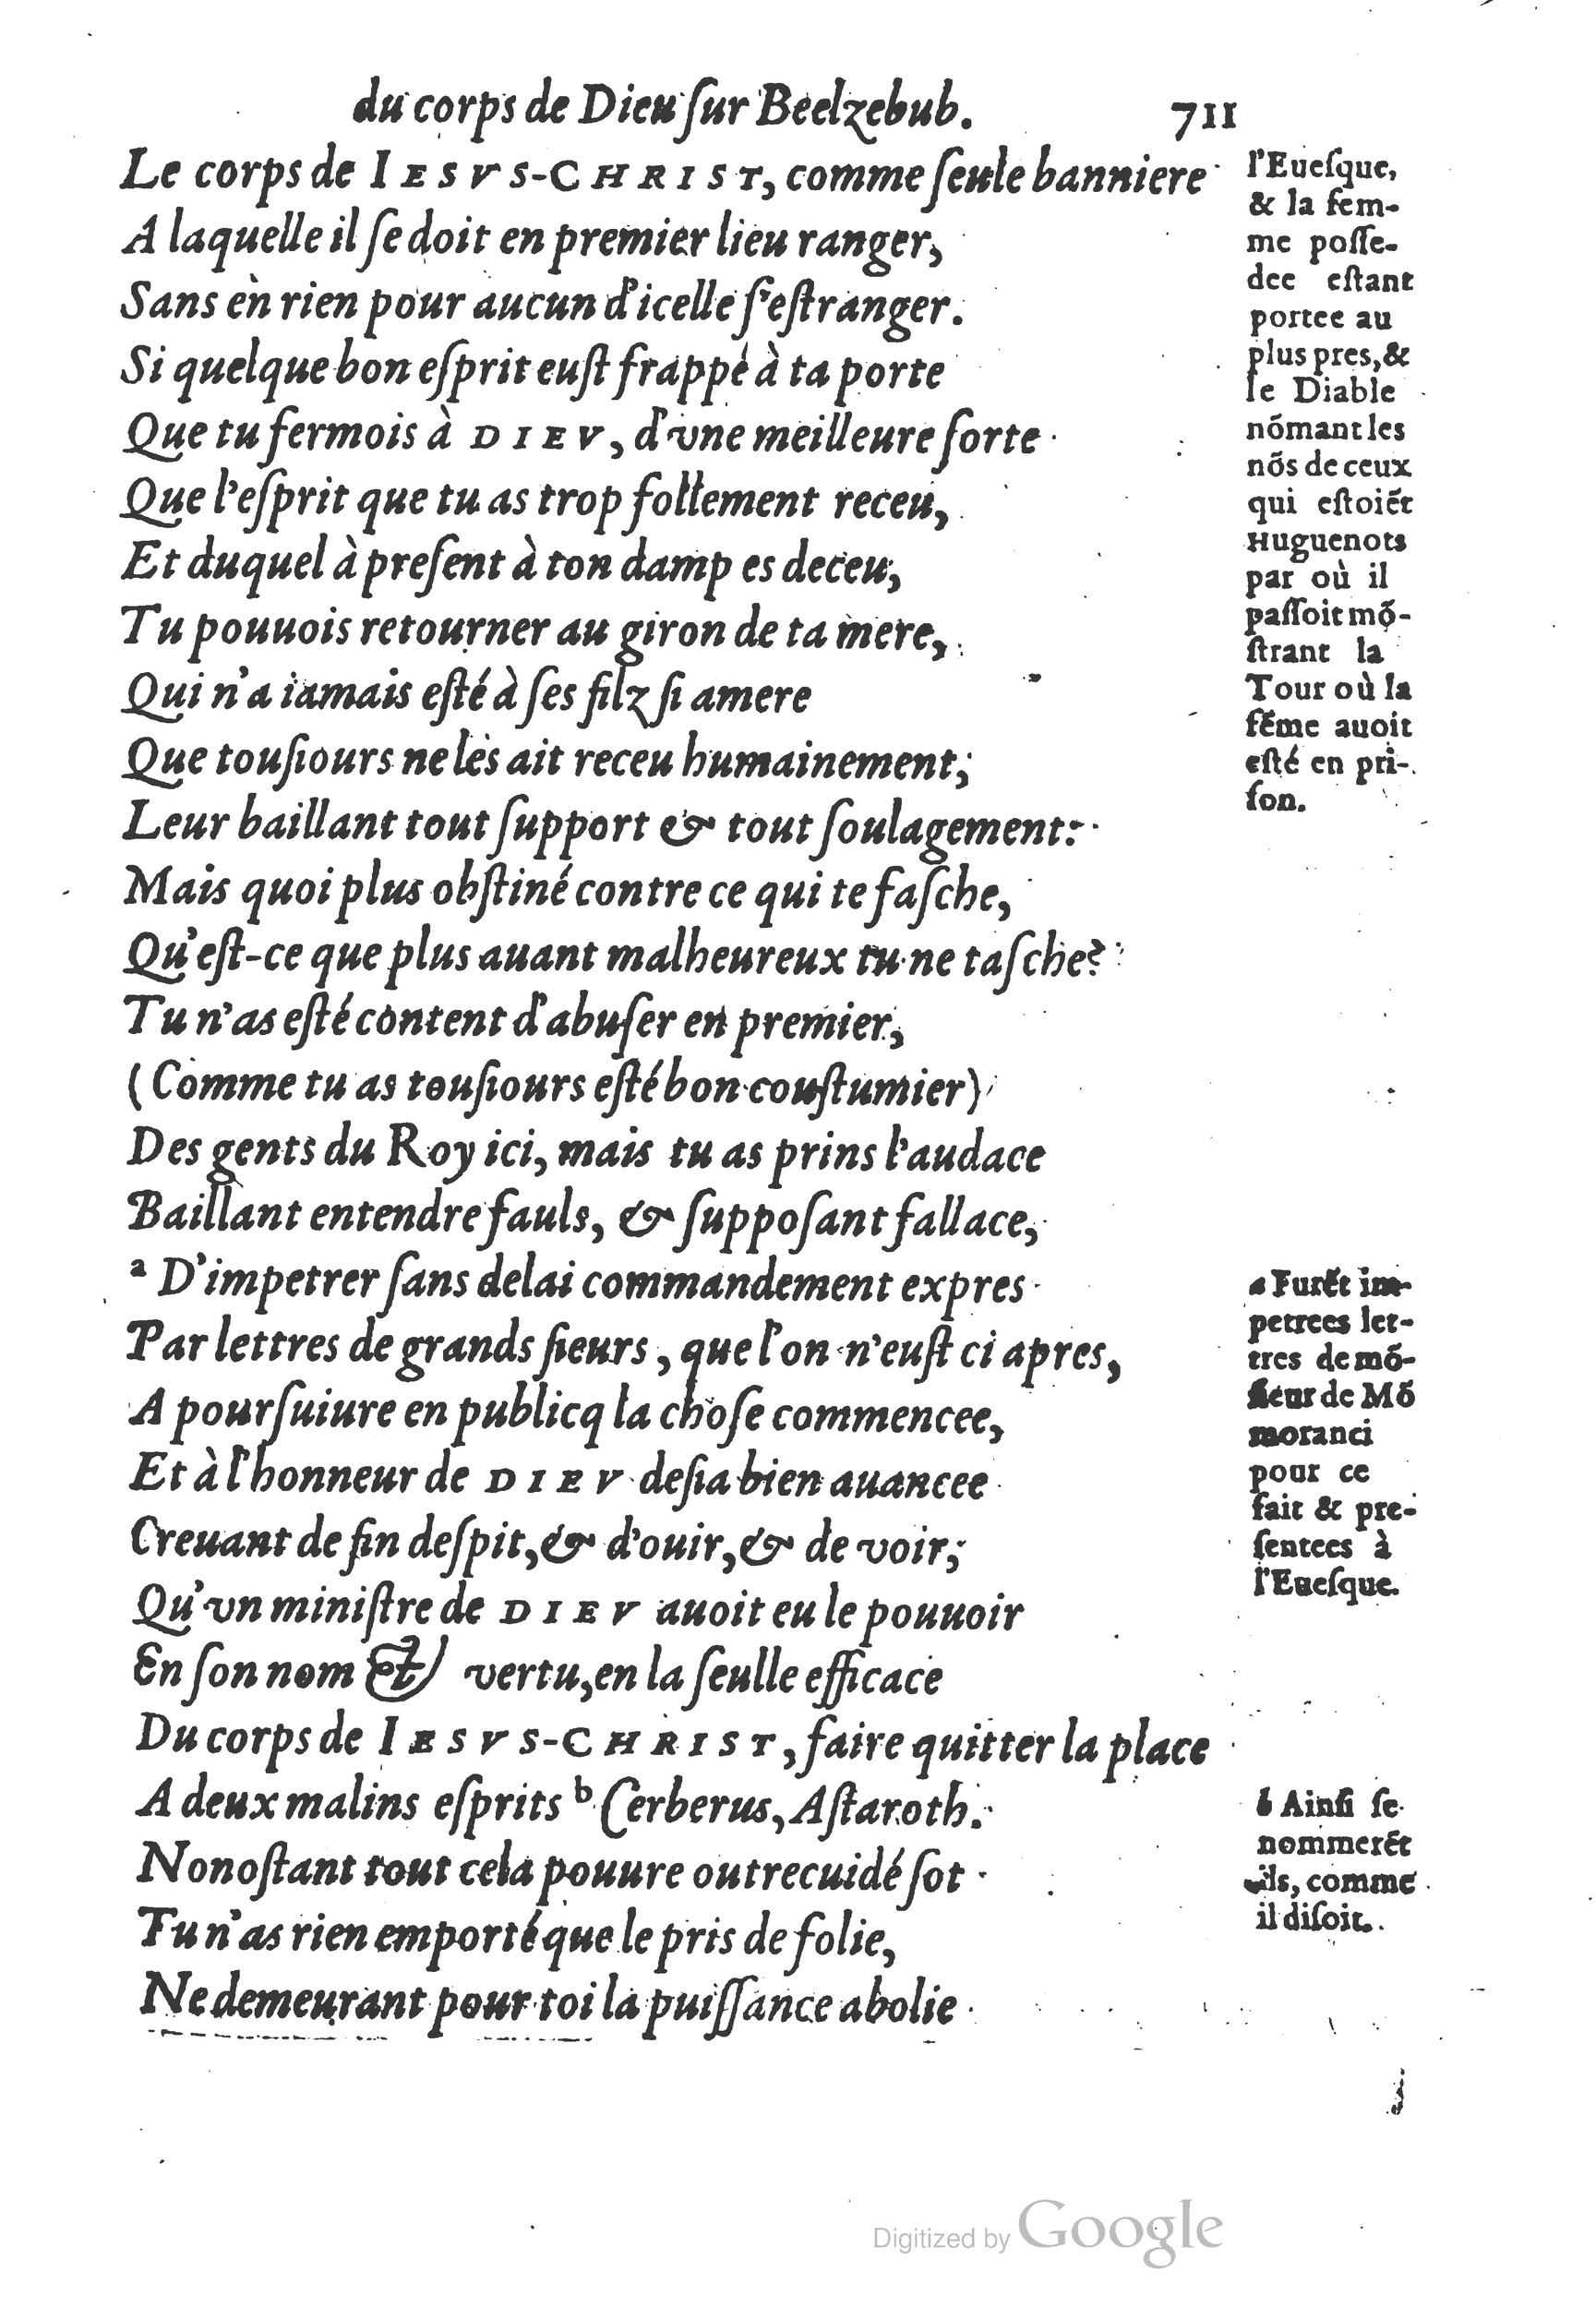 du corps de Dieu ſur Beelzebub. 711
Le corps de IESVS-CHRIST, comme ſeule banniere
A laquelle il ſe doit en premier lieu ranger,
Sans en rien pour aucun d'icelle ſ'eſtranger.
Si quelque bon eſprit euſt frappé à ta porte
Que tu fermois à DIEV, d'vne meilleure ſorte
Que l'eſprit que tu as trop follement receu,
Et duquel à preſent à ton damp es deceu,
Tu pouuois retourner au giron de ta mere,
Qui n'a iamais eſté à ſes filz ſi amere
Que touſiours ne les ait receu humainement;
Leur baillant tout ſupport & tout ſoulagement:
Mais quoi plus obſtiné contre ce qui te faſche,
Qu'eſt-ce que plus auant malheureux tu ne taſche?
Tu n'as eſté content d'abuſer en premier,
(Comme tu as touſiours eſté bon couſtumier)
Des gents du Roy ici, mais tu as prins l'audace
Baillant entendre fauls, & ſuppoſant fallace,
a D'impetrer ſans delai commandement expres
Par lettres de grands ſieurs, que l'on n'euſt ci apres,
A pourſuiure en publicq la choſe commencee,
Et à l'honneur de DIEV deſia bien auancee
Creuant de fin deſpit, & d'ouir, & de voir,
Qu'vn miniſtre de DIEV auoit eu le pouuoir
En ſon nom et vertu, en la ſeulle efficace
Du corps de IESVS-CHRIST, faire quitter la place
A deux malins eſprits b Cerberus, Aſtaroth.
Nonoſtant tout cela pouure outrecuidé ſot
Tu n'as rien emporté que le pris de folie,
Ne demeurant pour toi la puiſſance abolie
l'Eueſque,
& la fem-
me poſſe-
dee eſtant
portee au
plus pres, &
le Diable
nõmant les
nõs de ceux
qui eſtoiẽt
Huguenots
par où il
paſſoit mõ-
ſtrant la
Tour où la
fẽme auoit
eſté en pri-
ſon.
a Furẽt im-
petrees let-
tres de mõ-
ſieur de Mõ
moranci
pour ce
fait & pre-
ſentees à
l'Eueſque.
b Ainſi ſe
nommerẽt
ils, comme
il diſoit.
Digitized by Google